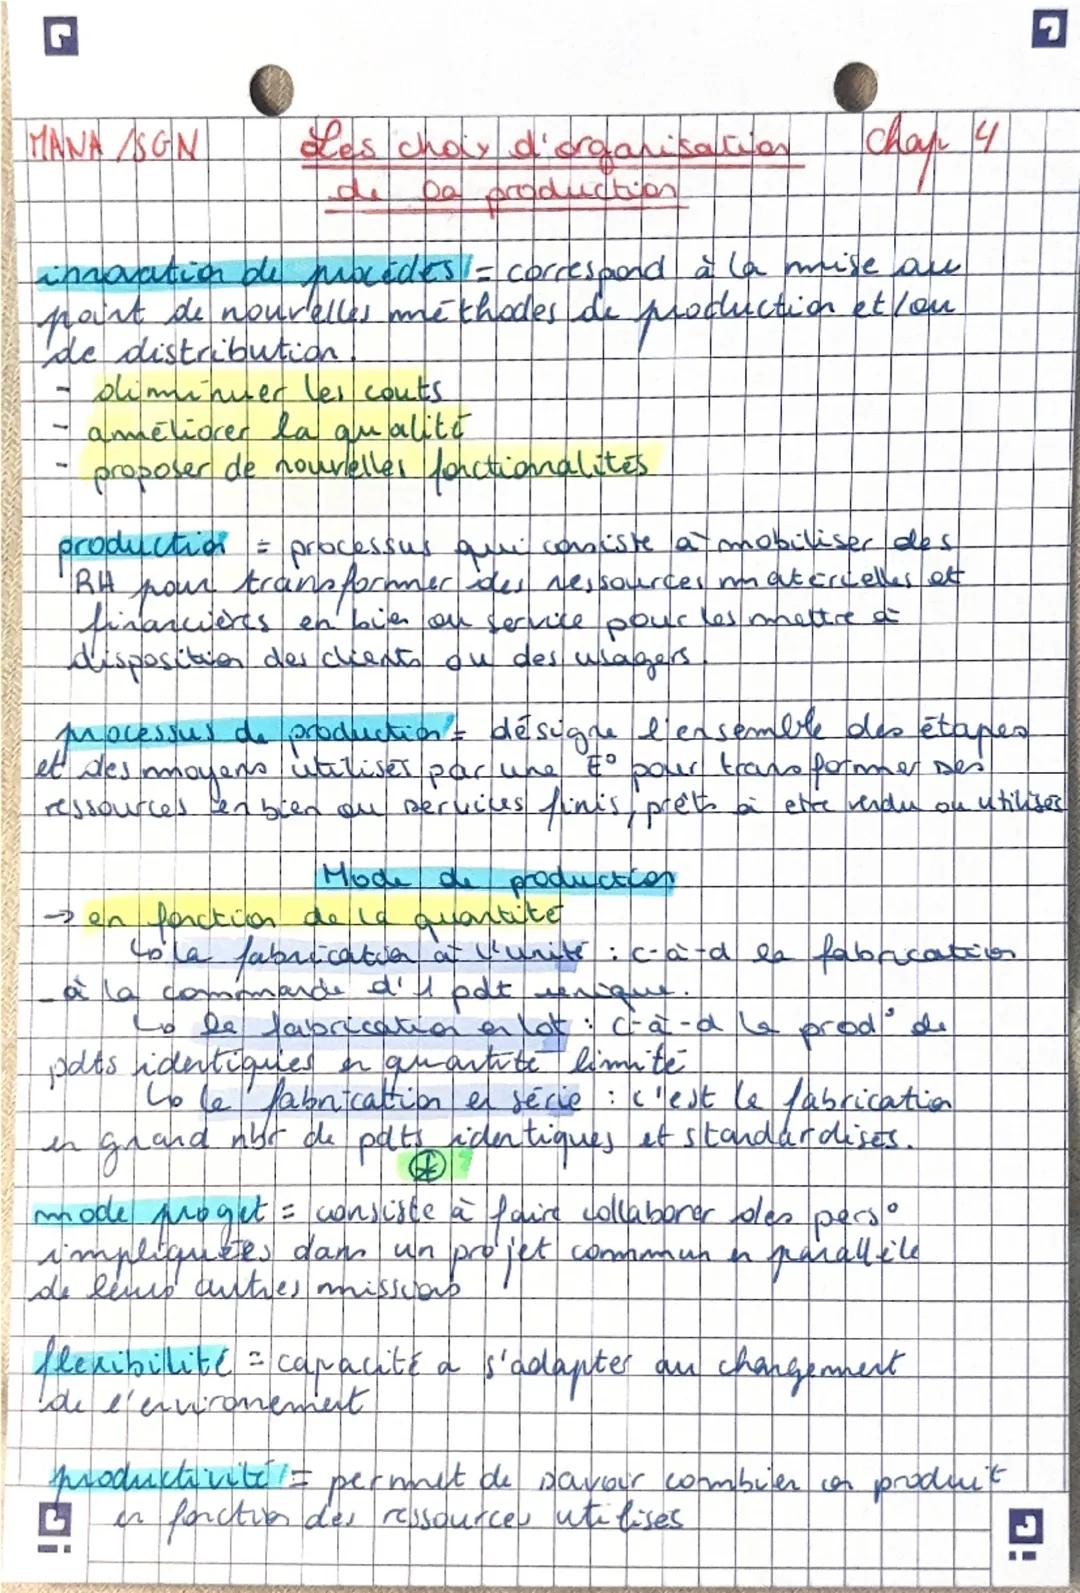 MANA /SGN Les choix d'organisation Chap 4
de la production
innovation de procédés = correspond à la mise au
point de nouvelles méthodes de production et/ou
de distribution.
- diminuer les couts
- améliorer la qualité
- proposer de nouvelles fonctionnalités
production = processus qui consiste à mobiliser des
RH pour transformer des ressources matérielles et
financières en bien ou service pour les mettre à
disposition des clients ou des usagers.
processus de production = désigne l'ensemble des étapes
et des moyens utilisés par une E° pour transformer ses
ressources en bien ou services finis, prêts à etre vendu ou utilisés
Mode de production
→ en fonction de la quantité
↳ la fabrication à l'unité : c-à-d la fabrication
à la commande d'1 pdt unique.
↳ la fabrication en lot : c-à-d la prod° de
pdts identiques en quantité limité
↳ la fabrication en série : c'est la fabrication
en grand nbr de pdts identiques et standardisés.
mode proget = consiste à faire collaborer des pers°
impliquées dans un projet commun en parallèle
de leurs autres missions
flexibilité = capacité a s'adapter au changement
de l'environement
productivité = permet de savoir combien on produit
en fonction des ressources utilisés